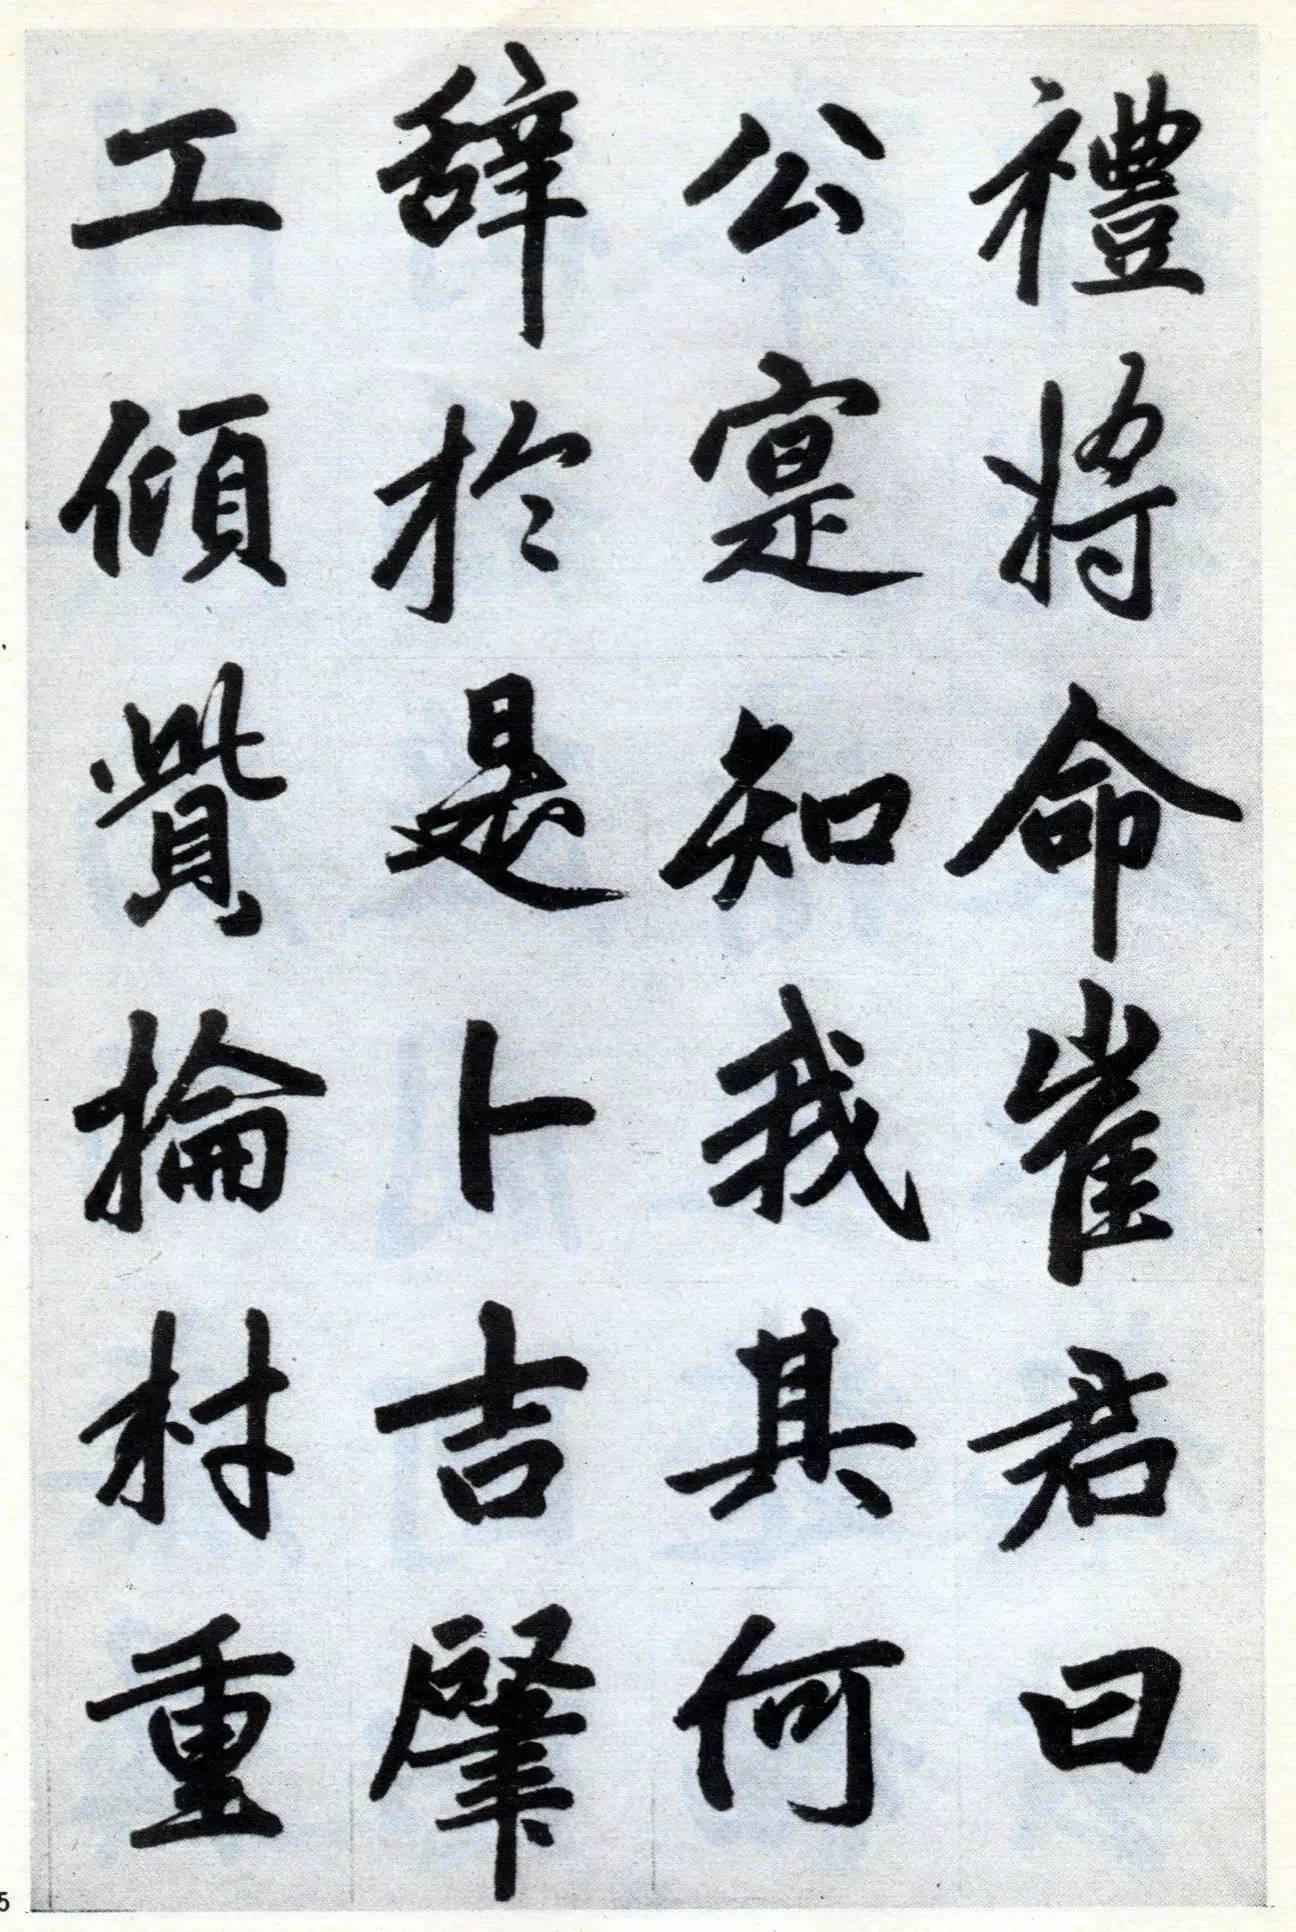 禮將命崔君曰
公寔知我其何
辭於是卜吉肇
工傾貲掄材重
5